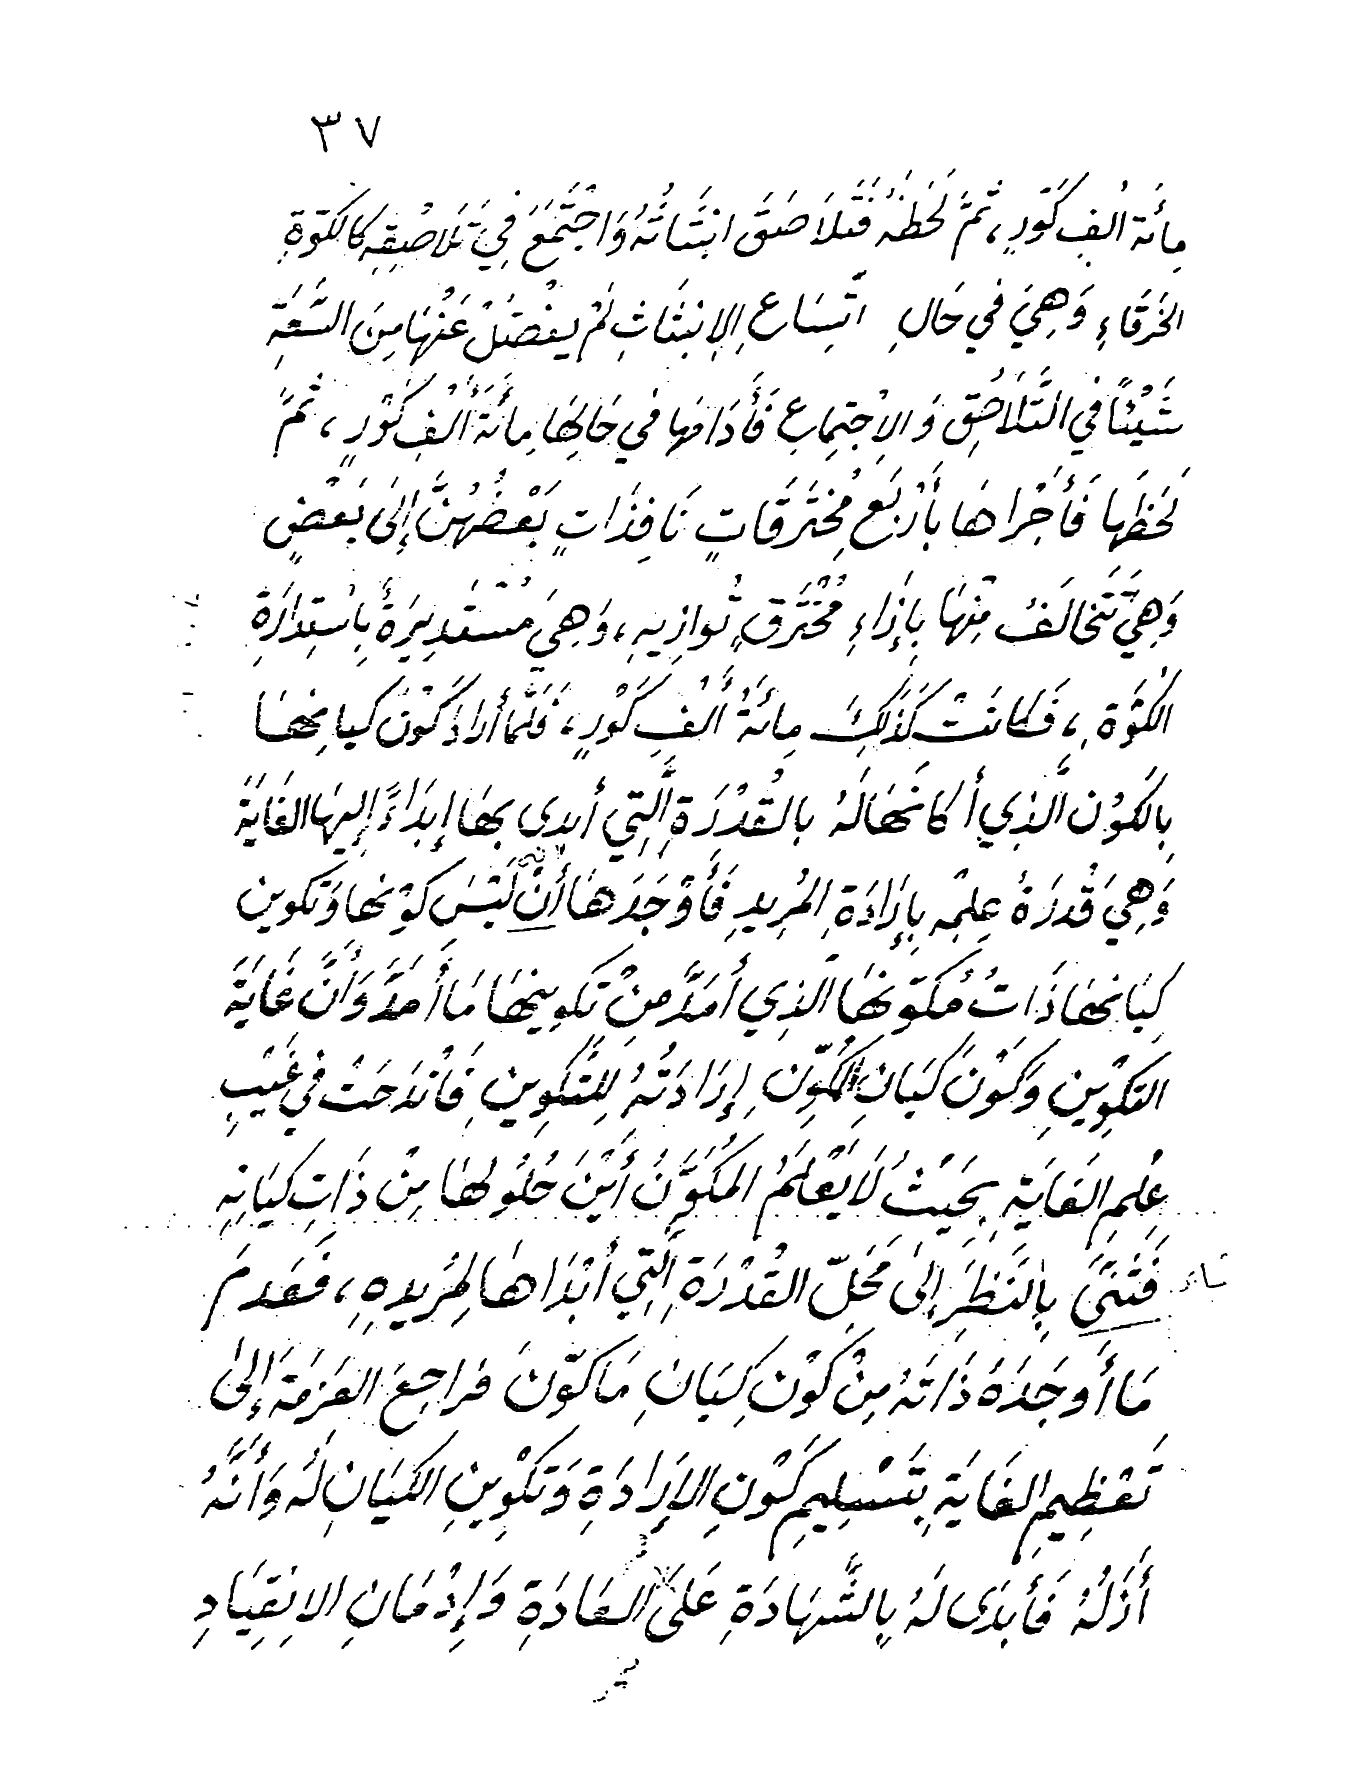 ٣٧
مِائَة أَلفِ كَوْرٍ، ثُمَّ لَحَظَهُ فَتَلَاصَقَ انبَثَاثُهُ وَاجْتَمَعَ فِي تَلَاصُقِهِ كَالكُوَّةِ
الخَرقَاءِ وَهِيَ في حَالِ اتِّسَاعِ الِانبَثَاثِ لَمْ يَفْضُلْ عَنْهَا مِنَ السَّعَةِ
شَيْئًا في التَّلَاصُقِ وَالِاجْتِمَاعِ فَأَدَامَهَا في حَالِهَا مِائَةَ أَلْفِ كَوْرٍ، ثُمَّ
لَحَظَهَا فَأَجْرَاهَا بِأَرْبَعِ مُخْتَرَقَاتٍ نَافِذَاتٍ بَعْضُهُنَّ إِلَى بَعْضٍ
وَهِيَ تَتَخَالَفُ مِنْهَا بِإِزَاءِ مُخْتَرَقٍ تُوَازِيهِ، وَهِيَ مُسْتَدِيرَةٌ بِاسْتِدَارَةِ
الكُوَّةِ، فَكَانَتْ كَذَلِكَ مِائَةَ أَلْفِ كَوْرٍ، فَلَمَّا أَرَادَ كَوْنَ كِيَانِهَا
بِالكَوْنِ الَّذِي أَكَانَهَا لَهُ بِالقُدْرَةِ الَّتِي أَبدى بِهَا إِبدَاءً إِليهَا الغَايَةَ
وَهِيَ قُدْرَةُ عِلْمِهِ بِإِرَادَةِ المُرِيدِ فَأَوْجَدَهَا أَنْ لَيْسَ كَوْنهَا وَتَكوين
كِيَانهَا ذَاتُ مُكَوِّنِهَا الَّذِي أَمَدَّ مِنْ تَكوِينِهَا مَا أَمَدَّ وَأَنَّ غَايَةَ
التَكْوِينِ وَكَوْنَ كَيَانِ المُكَوِّنِ إِرَادَتُهُ لِلتَّكوِينِ فَانْدَحَتْ في غَيْبِ
عِلْمِ الغَايَةِ بِحَيْثُ لَا يَعْلَمُ المُكَوَّنُ أَيْنَ حُلُولُهَا مِنْ ذَاتِ كِيَانِهِ
فَتَنَّى بِالنَّظَرِ إِلَى مَحَلِّ القُدْرَةِ الَّتِي أَبْدَاهَا لِمُرِيدِهِ، فَعَدِمَ
شاء
مَا أَوجَدَهُ ذَاتَهُ مِنْ كَوْنِ كِيَانِ مَا كَوَّنَ فراجعَ العَزمَةَ إِلَى
تَعْظِيمِ الغَايَةِ بِتَسْلِيمِ كَوْنِ الإِرَادَةِ وَتَكْوِينِ الكيَانِ لَهُ وَأَنَّهُ
أَذَلَهُ فَأَبدَى لَهُ بِالشَّهَادَةِ عَلَى العَادَةِ وَإِدْمَانِ الانقِيَادِ